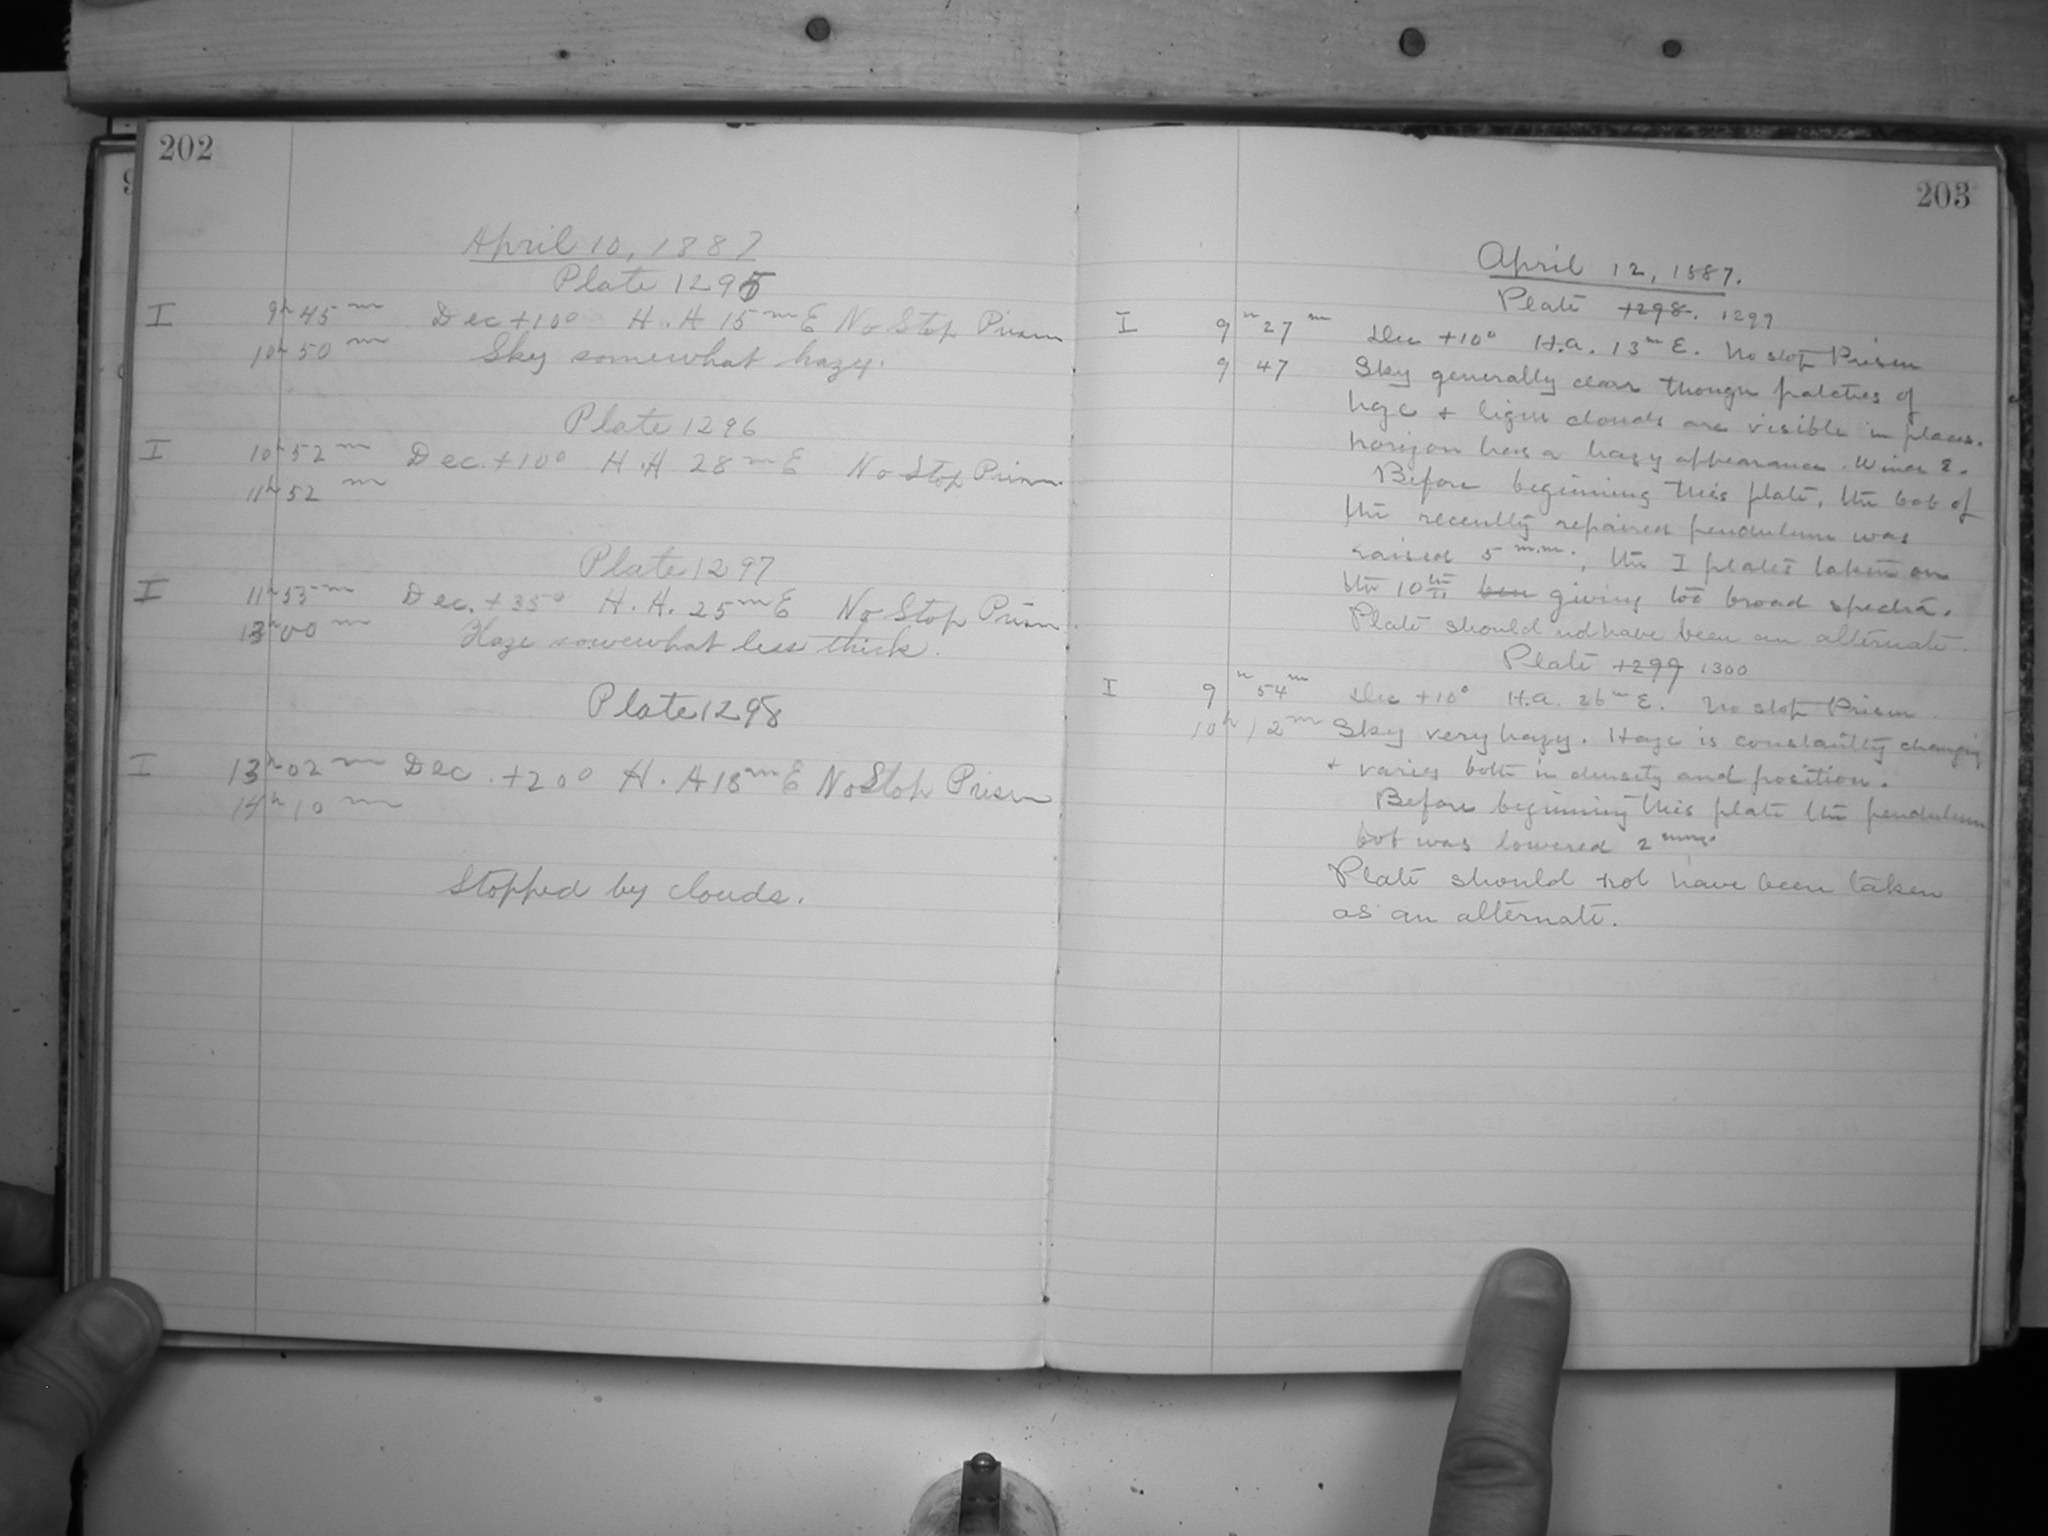 202
April 10, 1887
Plate 1295
I 9h 45m Dec +10° H.A 15m E No Stop Prism
10h 50m Sky somewhat hazy.
Plate 1296
I 10h 52m Dec. +10° H.A 28m E No Stop Prism
11h 52m
Plate 1297
I 11h 53m Dec. +35° H.A. 25m E No Stop Prism.
13h 00m Haze somewhat less thick.
Plate 1298
I 13h 02m Dec. +20° H.A 18m E No Stop Prism
14h 10m
Stopped by clouds.
203
April 12, 1887.
Plate 1298. 1299
I 9h 27m Dec +10° H.A. 13m E. No stop Prism
9 47 Sky generally clear though patches of
haze + light clouds are visible in places.
horizon has a hazy appearance. Wind 2.
Before beginning this plate, the bob of
the recently repaired pendulum was
raised 5 m.m., the I plates taken on
the 10th giving too broad spectra.
Plate should not have been an alternate.
Plate 1299 1300
I 9h 54m Dec +10° H.A. 26m E. No stop Prism
10h 12m Sky very hazy. Haze is constantly changing
+ varies both in density and position.
Before beginning this plate the pendulum
bob was lowered 2 mm.
Plate should not have been taken
as an alternate.